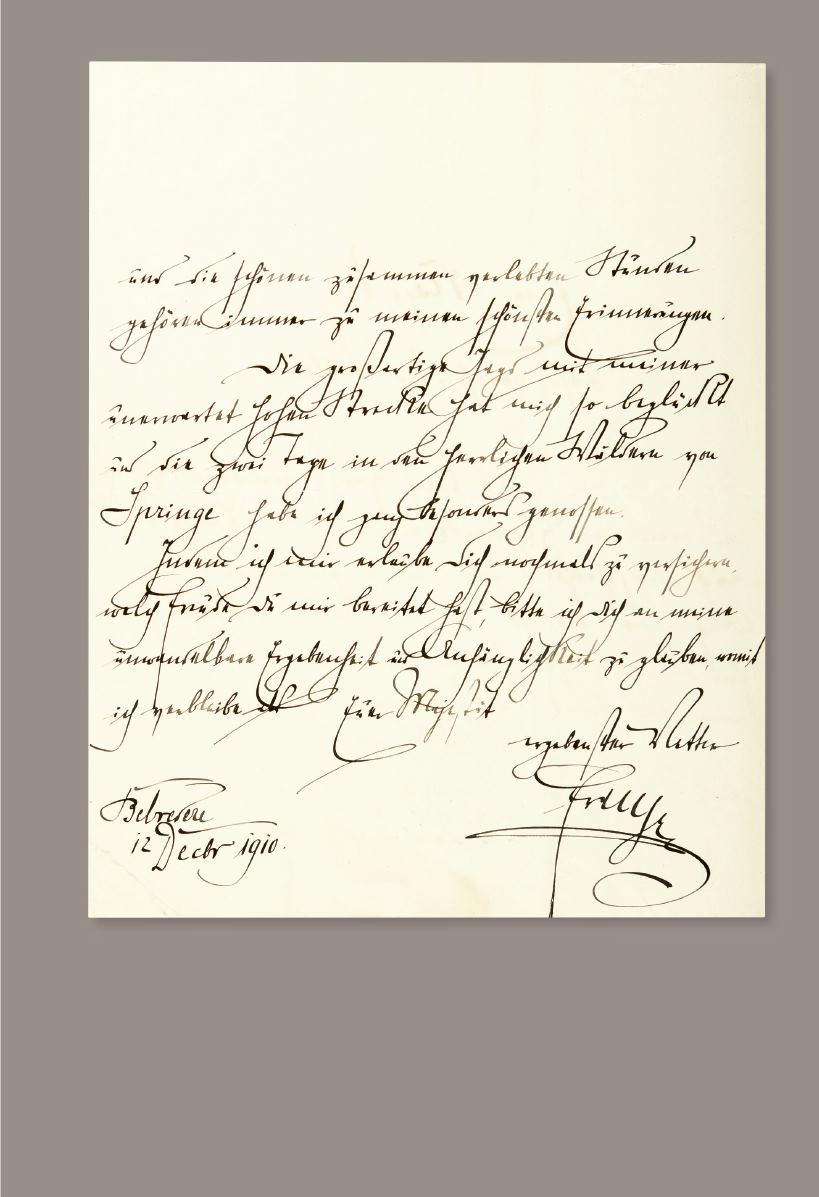 und die schönen zusammen verlebten Stunden
gehören immer zu meinen schönsten Erinnerungen.
Die großartige Jagd mit meiner
unerwartet hohen Strecke hat mich so beglückt
und die zwei Tage in den herrlichen Wäldern von
Springe habe ich ganz besonders genossen.
Indem ich mir erlaube Dich nochmals zu versichern,
welch Freude Du mir bereitet hast, bitte ich Dich an meine
unwandelbare Ergebenheit und Anhänglichkeit zu glauben, womit
ich verbleibe Euer Majestät
ergebenster Vetter
Franz
Belvedere
12 Decbr 1910.